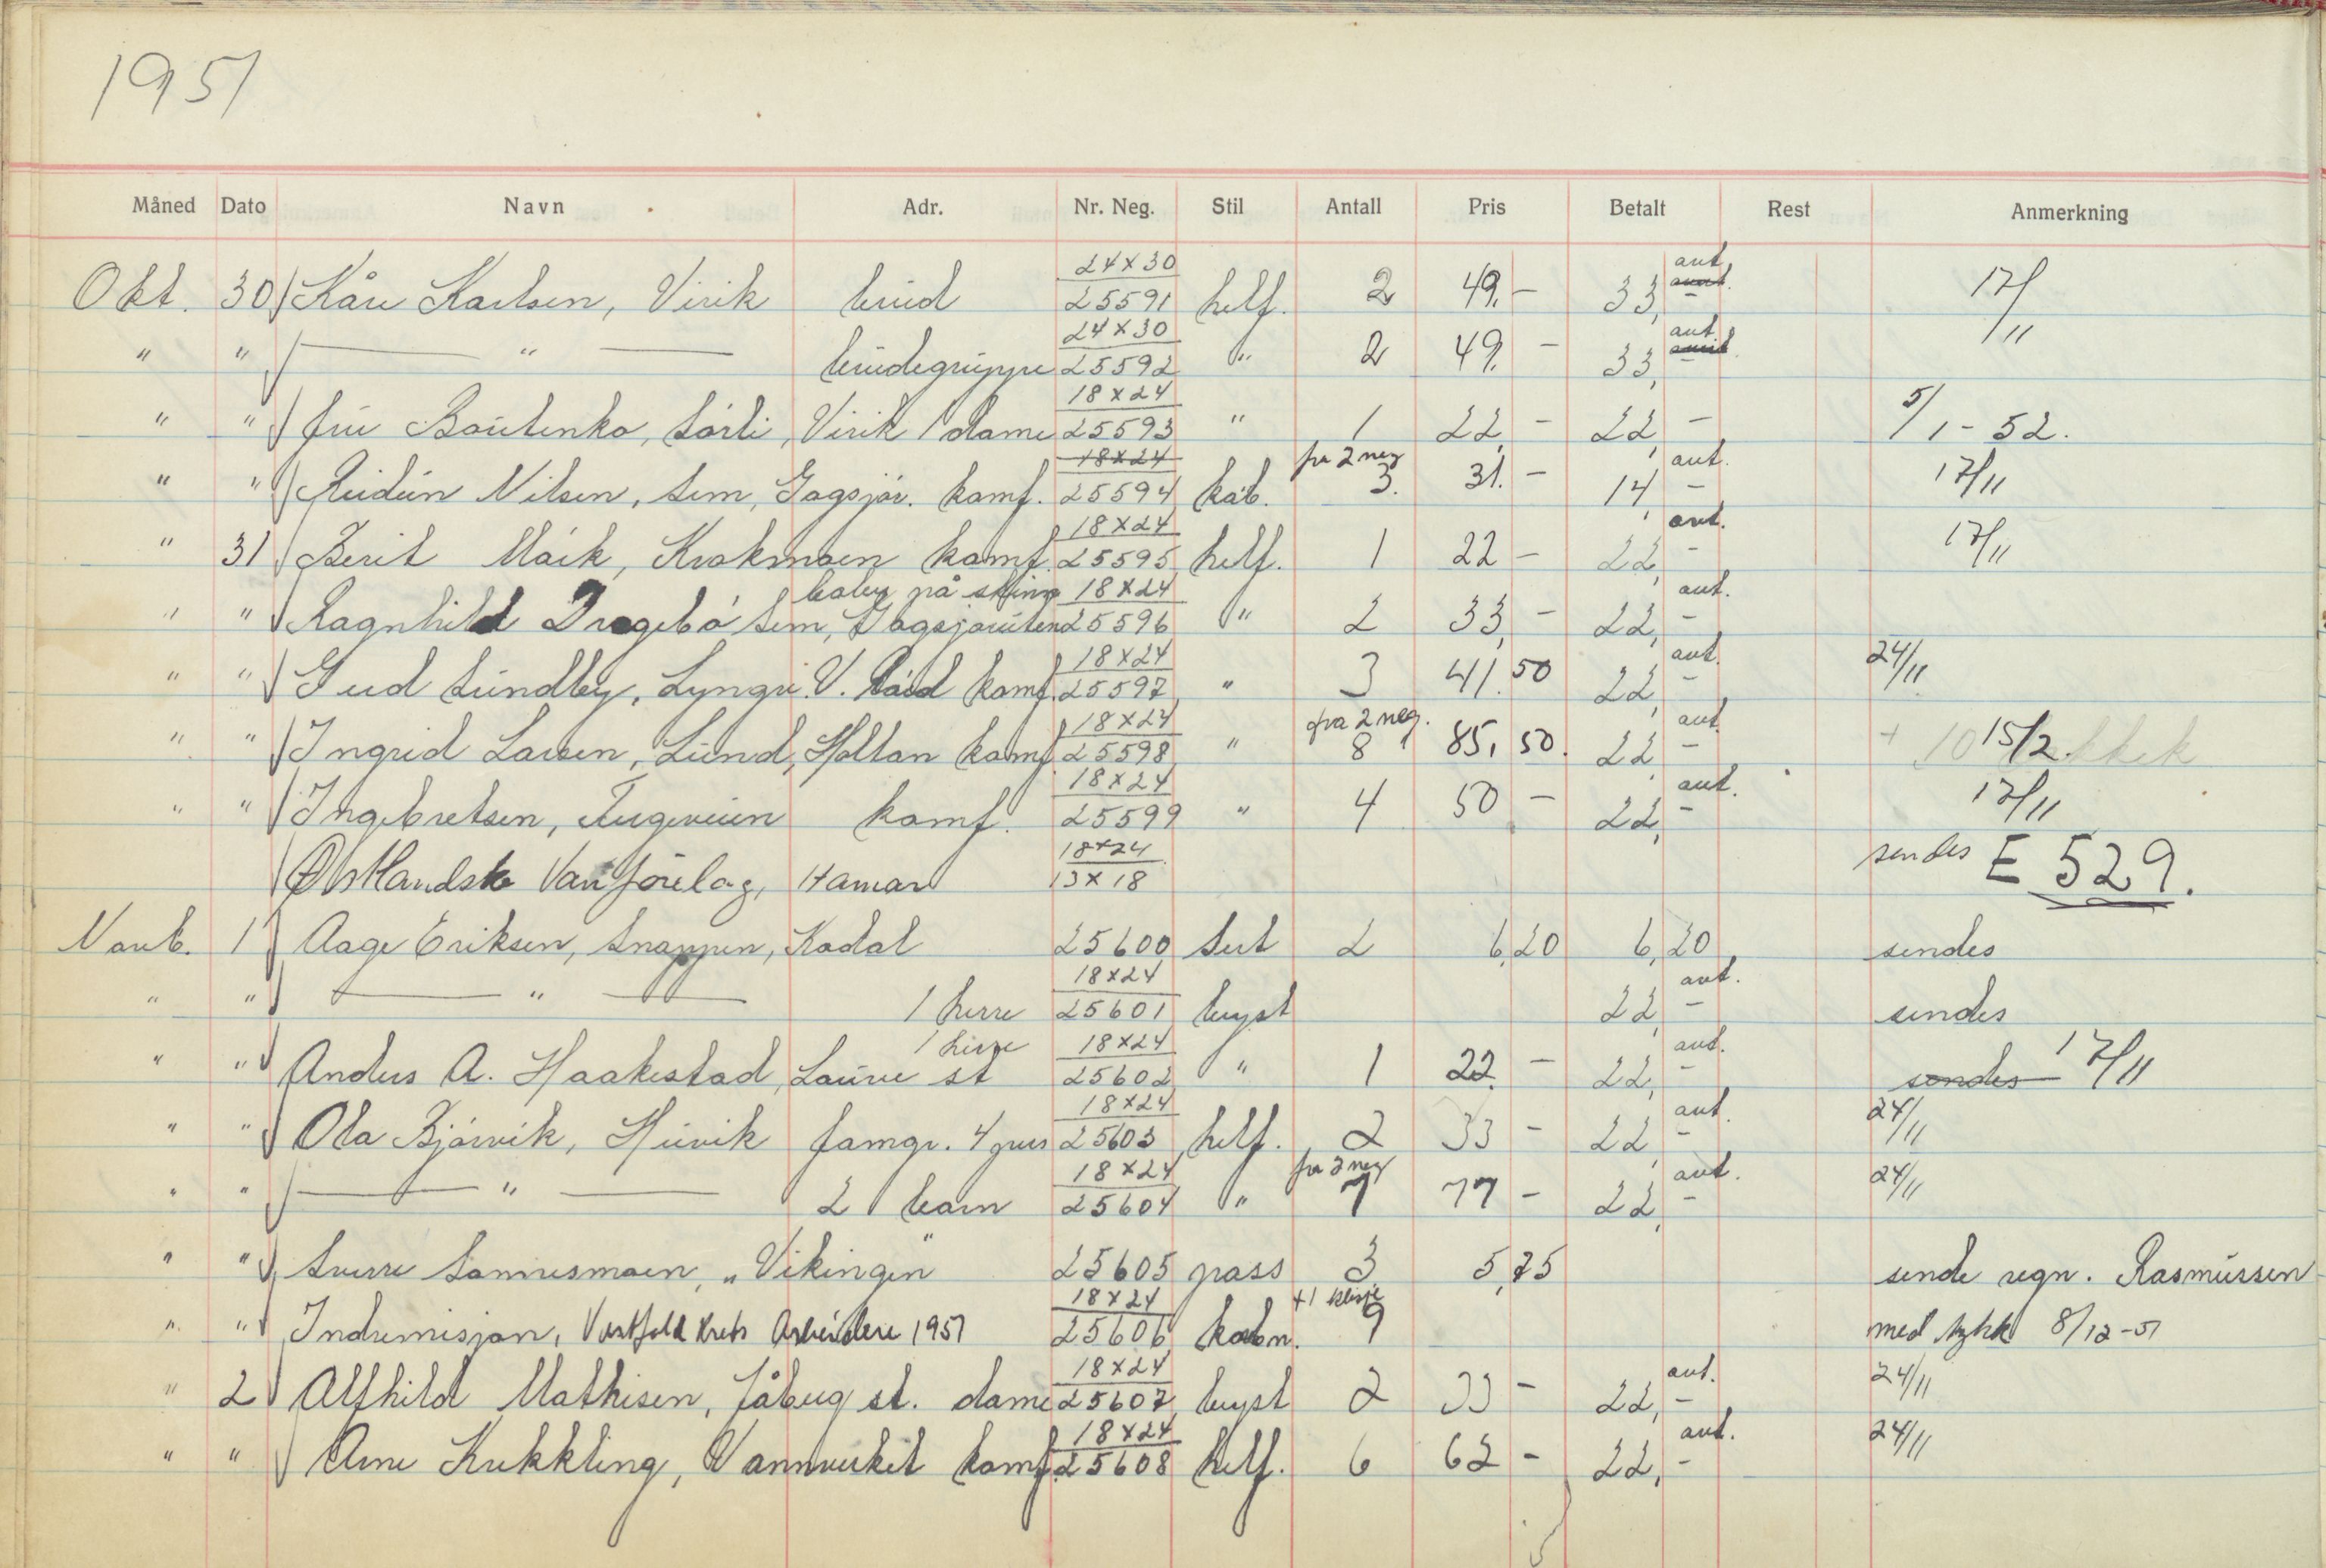 1951
Måned Dato Navn Adr. Nr. Neg. Stil Antall Pris Betalt Rest Anmerkning
Okt. 30 Kåre Karlsen, Virik brud 24x30 25591 helf. 2 49,- 33,- ant. 17/11
" " — " — brudegruppe 24x30 25592 " 2 49,- 33,- ant.
" " fru Boutenko, Sörli, Virik 1 dame 18x24 25593 " 1 22,- 22,- 5/1-52.
" " Reidun Nilsen, Sem, Gogsjør. komf. 18x24 25594 kab. fra 2 neg 3. 31.- 14,- ant. 17/11
" 31 Berit Moik, Krokmoen komf. 18x24 25595 helf. 1 22- 22,- ant. 17/11
" " Ragnhild Dragebö Sem, Gogsjøruten baby på skinn 18x24 25596 " 2 33,- 22,- ant.
" " Gud Sundby, Lyngv. V. komf. 18x24 25597 " 3 41.50 22,- ant. 24/11
" " Ingrid Larsen, Lund, Holtan komf. 18x24 25598 " fra 2 neg. 8 85,50. 22,- ant. + 10 15/2
" " Ingebretsen, komf. 18x24 25599 " 4 50- 22,- ant. 17/11
Østlandske Vanförelag, Hamar 18x24 13x18 sendes E 529.
Novb. 1 Aage Eriksen, Snappen, Kodal 25600 Sert 2 6,20 6,20 sendes
" " — " — 1 herre 18x24 25601 byst 22,- ant. sendes
" " Anders A. Haakestad, Lauve st 1 herre 18x24 25602 " 1 22.- 22,- ant. sendes 17/11
" " Ola Bjørvik, Husvik famgr. 4 pers 18x24 25603 helf. 2 33- 22,- ant. 24/11
" " — " — 2 barn 18x24 25604 " fra 2 neg 7 77- 22,- ant. 24/11
" " Sverre Sannesmoen, „Vikingen" 25605 pass 3 5,75 sende regn. Rasmussen
" " Indremisjon, Vestfold Krets Arbeidere 1951 18x24 25606 kabn. +1 klisje 9 med 8/12-51
" 2 Alfhild Mathisen, Jåberg st. dame 18x24 25607 byst 2 33- 22,- ant. 24/11
" " Arne Krekkling, Vannverket komf. 18x24 25608 helf. 6 62- 22,- ant. 24/11